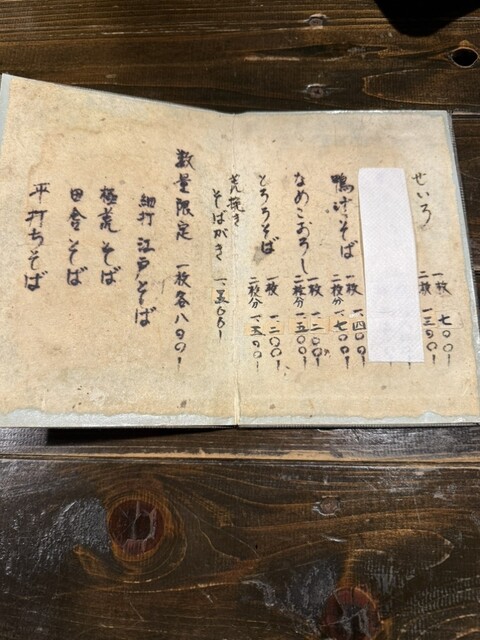 せいろ
一枚 七〇〇
二枚 一三〇〇
鴨汁そば
一枚 一、四〇〇
二枚分 一、七〇〇
なめこおろし
一枚 一、二〇〇
二枚分 一、五〇〇
とろろそば
一枚 一、二〇〇
二枚分 一、五〇〇
荒挽き
そばがき 一、五〇〇
数量限定 一枚各八〇〇
細打 江戸そば
極荒そば
田舎そば
平打ちそば